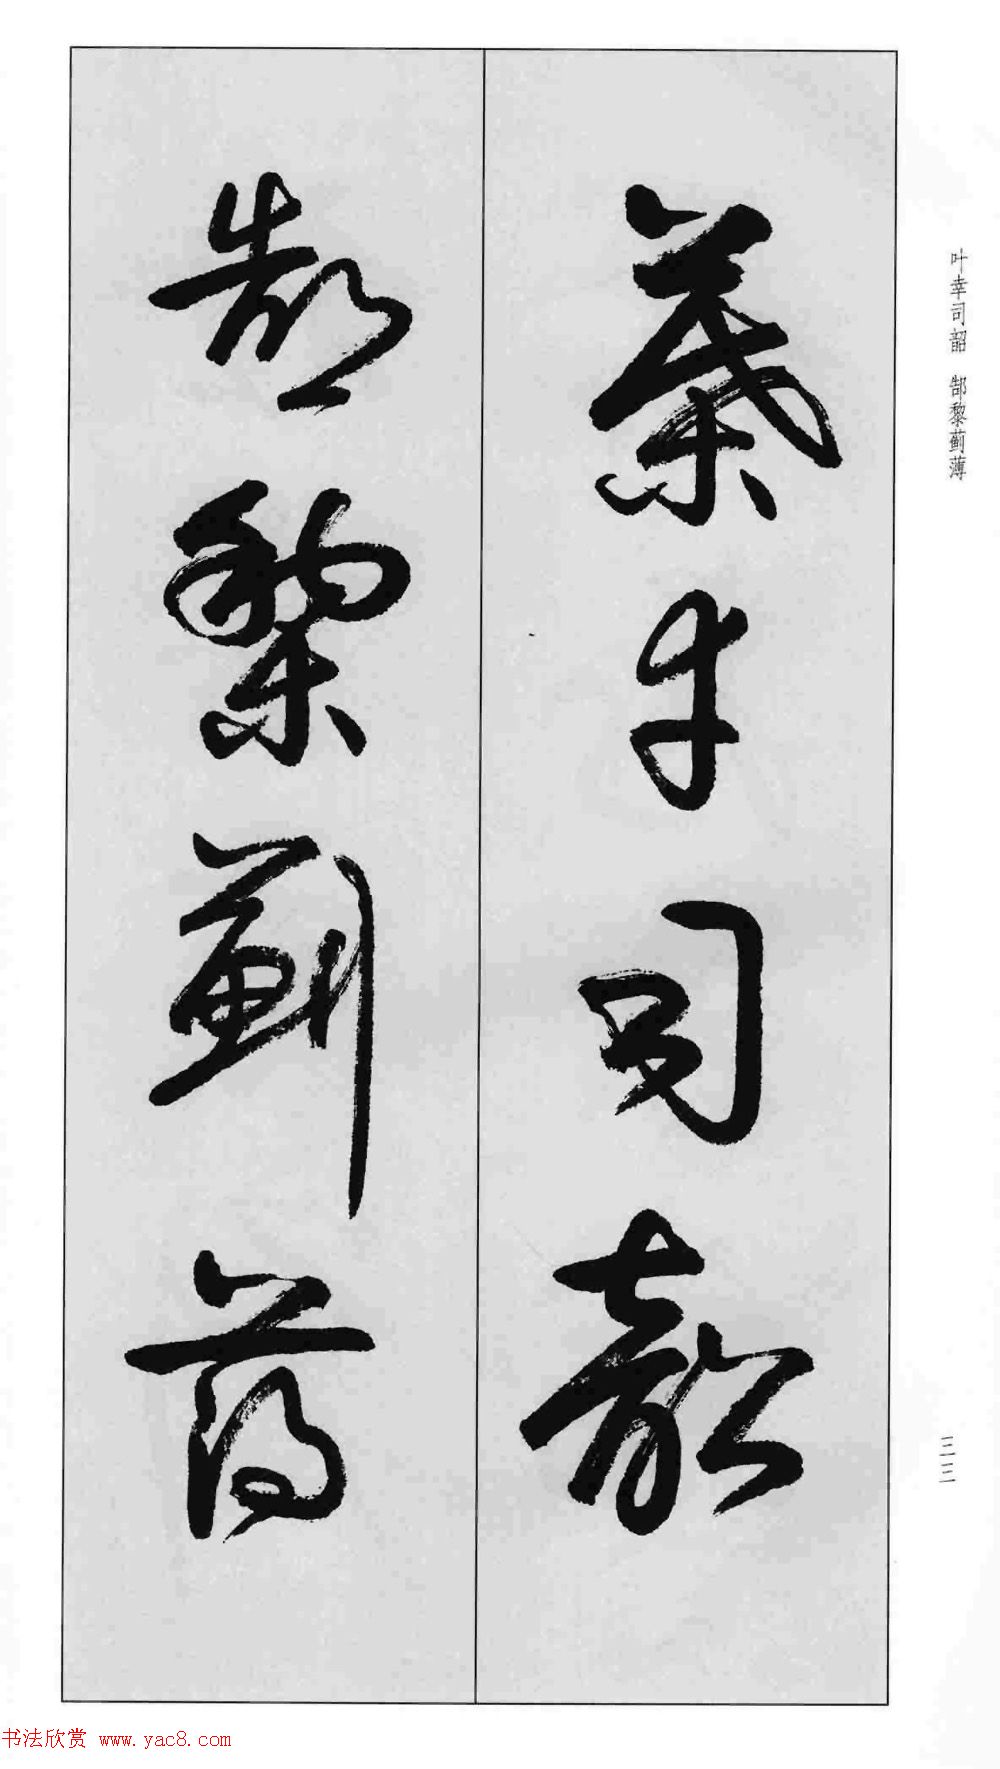 叶幸司韶 郜黎蓟薄
葉幸司韶
郜黎薊薄
三三
书法欣赏 www.yac8.com